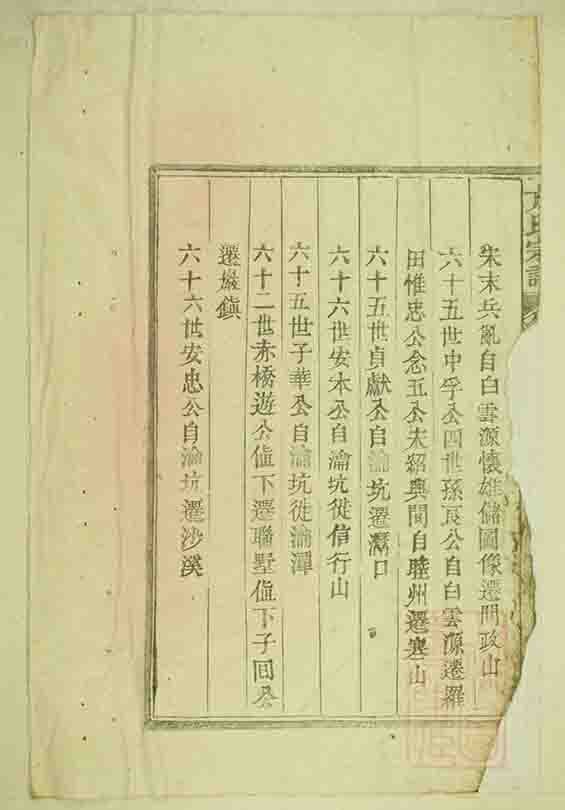 氏宗譜
宋末兵亂自白雲源懷雄儲圖像遷問政山
六十五世中孚公四世孫辰公自白雲源遷羅
田惟忠公念五公宋紹興間自睦州遷寒山
六十五世貞獻公自淪坑遷灊口
六十六世安木公自瀹坑徙信行山
六十五世子華公自淪坑徙淪潭
六十二世赤橋遊公值下遷聯墅值下子回公
遷巖鎮
六十六世安忠公自淪坑遷沙溪